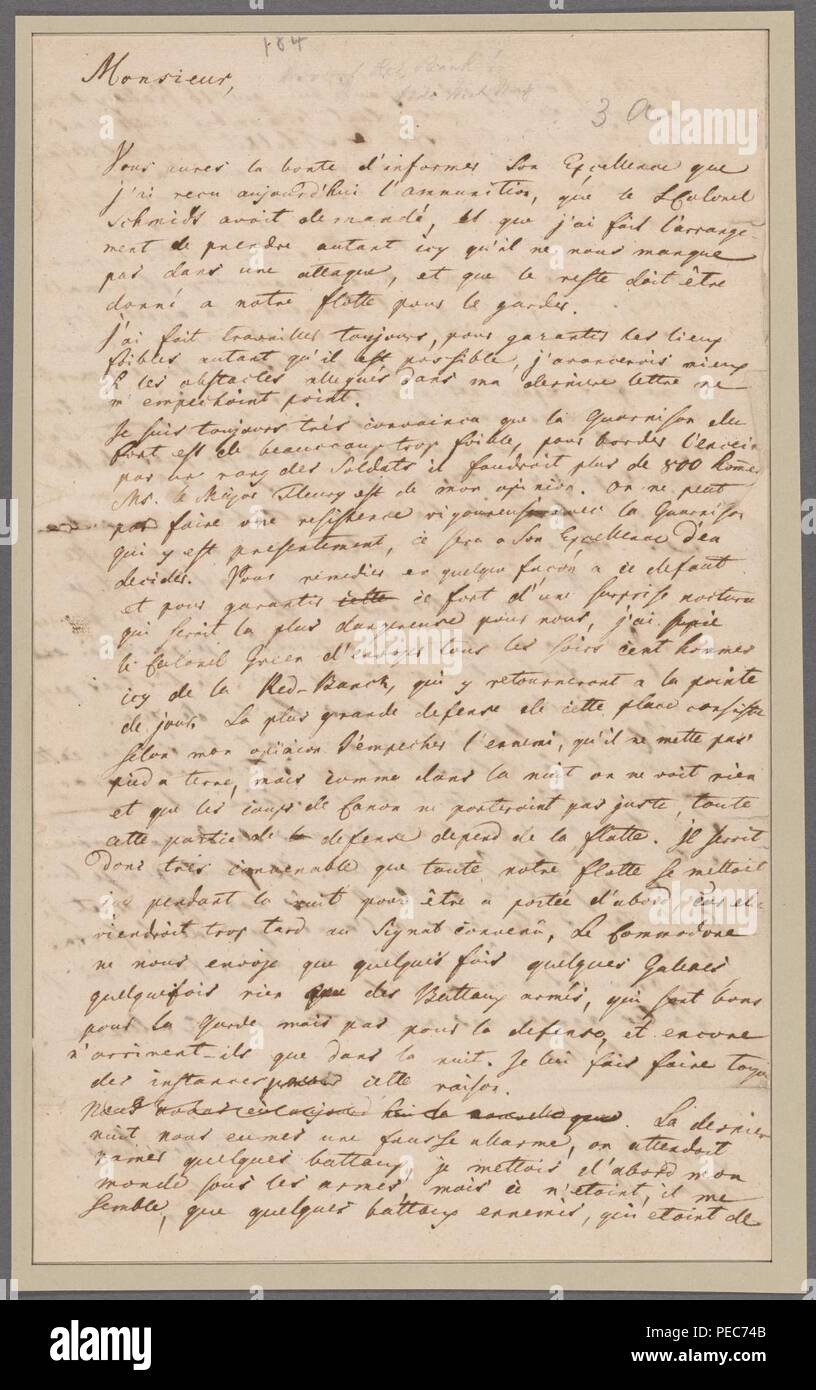 184
Monsieur,
3 a
Vous aures la bonte d'informer Son Excellence que
j'ai recu aujourd'hui l'ammunition, que le LColonel
Schmids avoit demandé, et que j'ai fait l'arrange-
ment de prendre autant icy qu'il ne nous manque
pas dans une attaque, et que le reste doit être
donné a notre flotte pour le garder.
J'ai fait travailler toujours, pour garantir les lieux
foibles autant qu'il est possible, j'avancerois mieux
si les obstacles allegués dans ma derniere lettre ne
m'empechoint point.
Je suis toujours très convaincu que la Guarnison du
fort est de beaucoup trop foible, pour border l'encein
par un rang des Soldats il faudroit plus de 800 homes
Ms. le Major Fleury est de mon opinion. On ne peut
pas faire une resistence vigoureuse avec la Guarnison
qui y est presentement, ce sera a Son Excellence d'en
decider. Pour remedier en quelque façon a ce defaut
et pour garantir cette ce fort d'une surprise nocturne
qui seroit la plus dangereuse pour nous, j'ai prié
le Colonel Grien d'envoyer tous les soirs cent hommes
icy de la Red-Banck, qui y retourneront a la pointe
de jour. La plus grande defense de cette place consiste
selon mon opinion d'empecher l'ennemi, qu'il ne mette pas
pied a terre, mais comme dans la nuit on ne voit rien
et que les coups de Canon ne porteroint pas juste, toute
cette partie de la defense depend de la flotte. Il seroit
donc très convenable que toute notre flotte se mettoit
icy pendant la nuit pour être a portée d'abord, car elle
viendroit trop tard au Signal convenû, Le Commodore
ne nous envoje que quelques fois quelques Galeres,
quelquefois rien que des Battaux armés, qui sont bons
pour la Garde mais pas pour la defense, et encore
n'arrivent-ils que dans la nuit. Je lui fais faire toujou
des instances pour cette raison.
Nous que. La derniere
nuit nous eumes une fausse allarme, on attendoit
ramer quelques battaux, je mettois d'abord mon
monde sous les armes, mais ce n'etoint, il me
semble, que quelques battaux ennemis, qui etoint de
alamy
Image ID: PEC74B
www.alamy.com